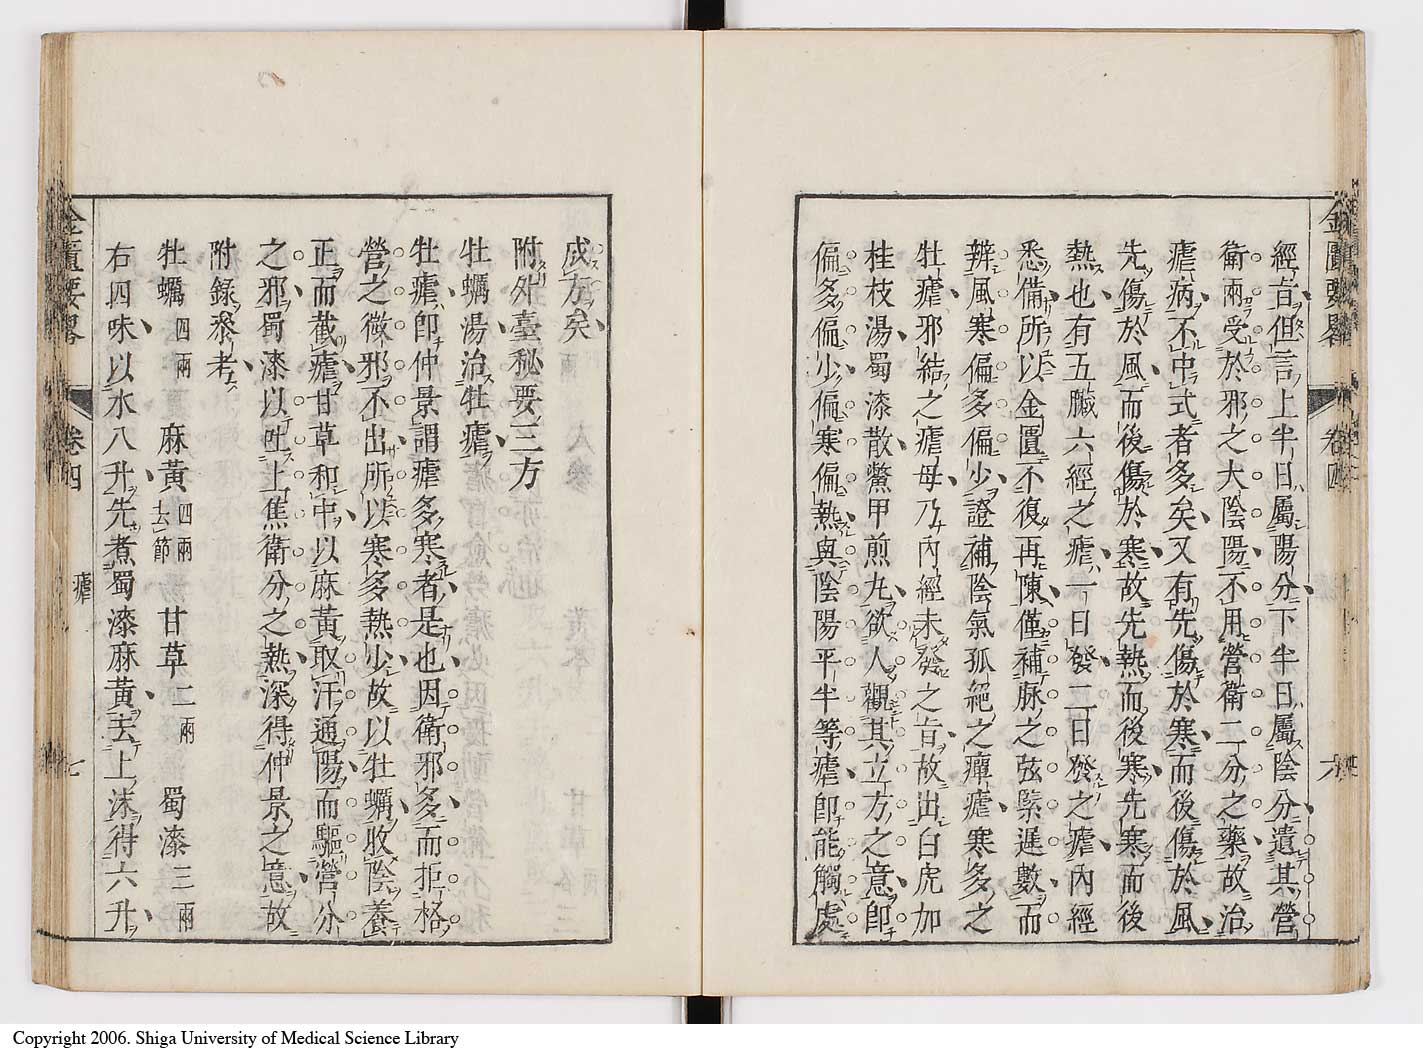 經旨但言上半日屬陽分下半日屬陰分遺其營
衛兩受於邪之大陰陽不用營衛二分之藥故治
瘧病不中式者多矣又有先傷於寒而後傷於風
先傷於風而後傷於寒故先熱而後寒先寒而後
熱也有五臟六經之瘧一日發二日發之瘧內經
悉備所以金匱不復再陳僅補脉之弦緊遲數而
辨風寒偏多偏少證補陰氣孤絕之癉瘧寒多之
牡瘧邪結之瘧母乃內經未發之旨故出白虎加
桂枝湯蜀漆散鱉甲煎丸欲人觀其立方之意卽
偏多偏少偏寒偏熱與陰陽平半等瘧卽能觸處
金匱要畧 卷四 六
成方矣
附外臺秘要三方
牡蠣湯治牡瘧
牡瘧卽仲景謂瘧多寒者是也因衛邪多而拒格
營之微邪不出所以寒多熱少故以牡蠣收陰養
正而截瘧甘草和中以麻黃取汗通陽而驅營分
之邪蜀漆以吐上焦衛分之熱深得仲景之意故
附錄叅考
牡蠣四兩 麻黃四兩去節 甘草二兩 蜀漆三兩
右四味以水八升先煮蜀漆麻黃去上沫得六升
金匱要畧 卷四 瘧 七
Copyright 2006. Shiga University of Medical Science Library